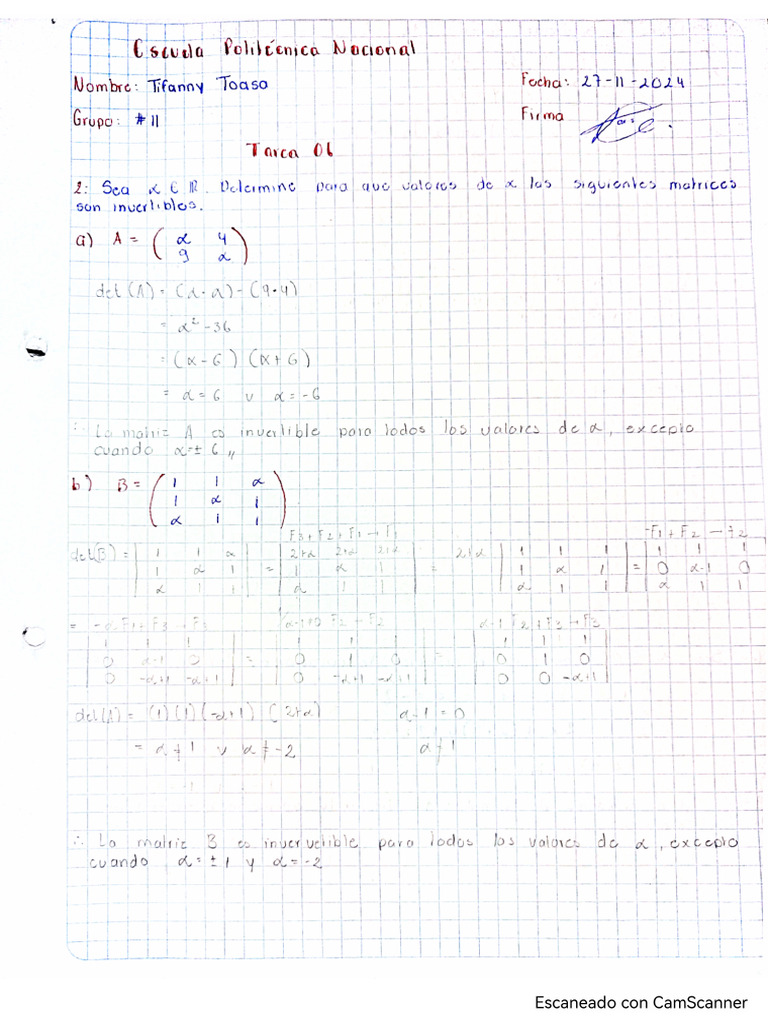 Escuela Politécnica Nacional
Nombre: Tifanny Toasa Fecha: 27-11-2024
Grupo: #11 Firma
Tarea 06
2: Sea α ∈ ℝ. Determine para que valores de α las siguientes matrices
son invertibles.
a) A = ( α 4
9 α )
det(A) = (α·α) - (9·4)
= α² - 36
= (α - 6) (α + 6)
= α = 6 v α = -6
∴ La matriz A es invertible para todos los valores de α, excepto
cuando α = ± 6 ,,
b) B = ( 1 1 α
1 α 1
α 1 1 )
F3 + F2 + F1 → F1 -F1 + F2 → F2
det(B) = | 1 1 α | = | 2+α 2+α 2+α | = 2+α | 1 1 1 | = | 1 1 1 |
| 1 α 1 | | 1 α 1 | | 1 α 1 | | 0 α-1 0 |
| α 1 1 | | α 1 1 | | α 1 1 | | α 1 1 |
= -α F1 + F3 → F3 F2 → F2 α-1 F2 + F3 → F3
| 1 1 1 | = | 1 1 1 | = | 1 1 1 |
| 0 α-1 0 | | 0 1 0 | | 0 1 0 |
| 0 -α+1 -α+1 | | 0 -α+1 -α+1 | | 0 0 -α+1 |
det(A) = (1)(1)(-α+1) (2+α) α-1 = 0
= α ≠ 1 v α ≠ -2 α ≠ 1
∴ La matriz B es invervelible para todos los valores de α, excepto
cuando α = ± 1 y α = -2
Escaneado con CamScanner